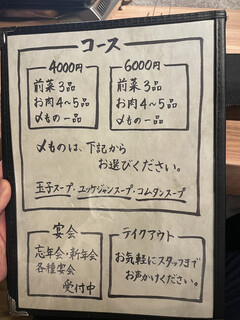 コース
4000円
前菜3品
お肉4~5品
〆もの一品
6000円
前菜3品
お肉4~5品
〆もの一品
〆ものは、下記から
お選びください。
玉子スープ・ユッケジャンスープ・コムタンスープ
宴会
忘年会・新年会
各種宴会
受付中
テイクアウト
お気軽にスタッフまで
お声かけください。